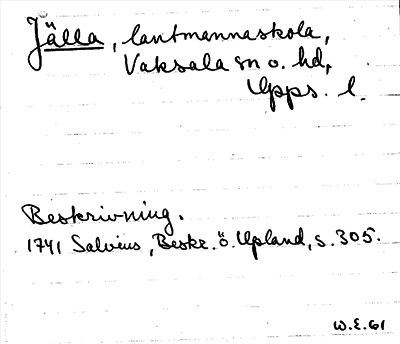 Jälla, lantmannaskola,
Vaksala sn o. hd,
Upps. l.
Beskrivning.
1741 Salvius, Beskr. ö. Upland, s. 305.
W.E.61